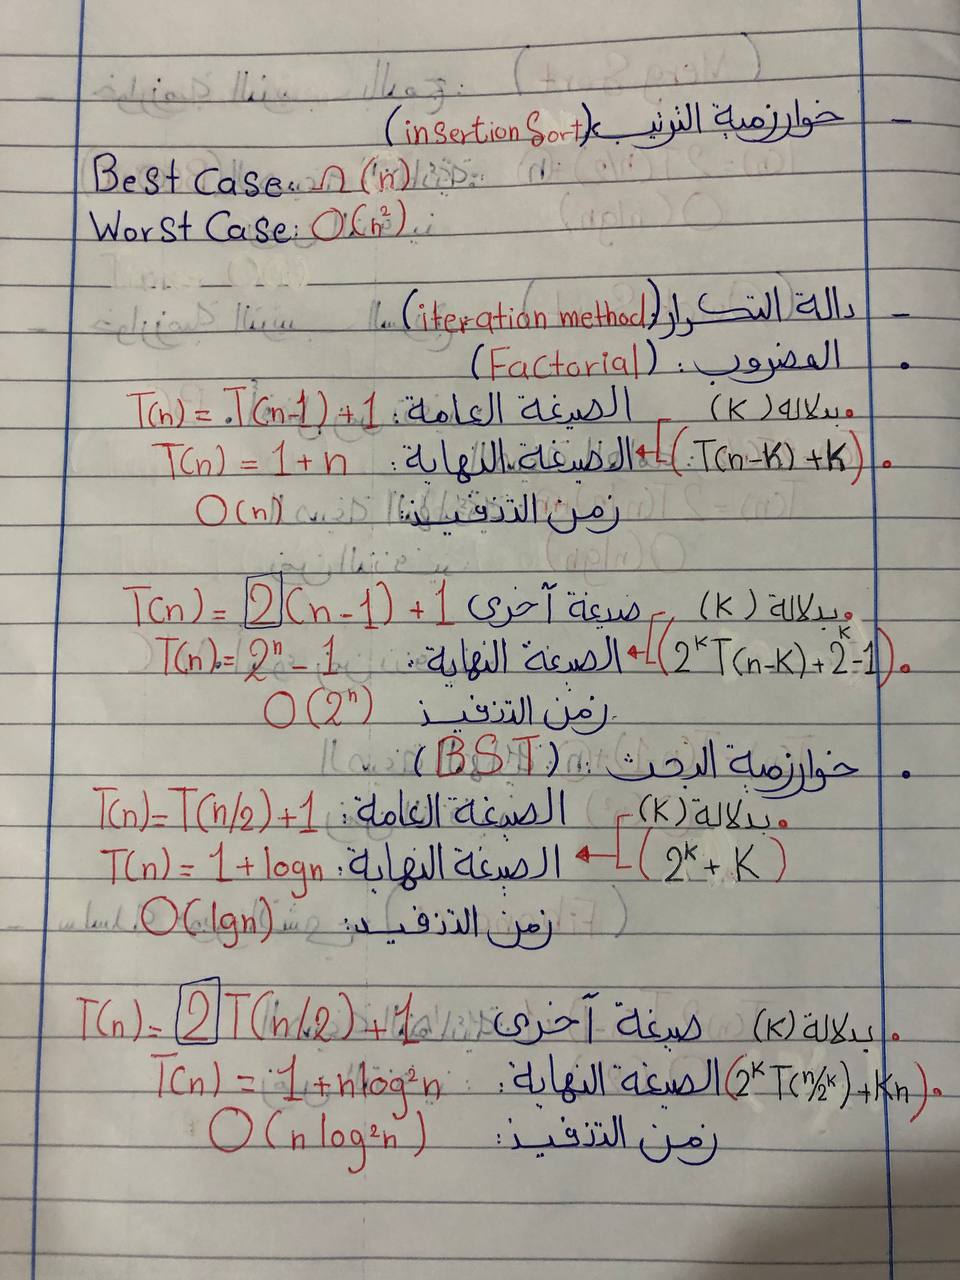 - خوارزمية الترتيب: (insertion Sort)
Best Case: Ω(n)
Worst Case: O(n²)
- دالة التكرار: (iteration method)
• المضروب: (Factorial)
• بدلالة (K) الصيغة العامة: T(n) = T(n-1) + 1
• (T(n-K) + K) الصيغة النهاية: T(n) = 1 + n
زمن التنفيذ: O(n)
• بدلالة (K) صيغة آخرى T(n) = 2(n-1) + 1
• (2ᴷ T(n-K) + 2ᴷ - 1) الصيغة النهاية: T(n) = 2ⁿ - 1
زمن التنفيذ O(2ⁿ)
• خوارزمية البحث: (BST)
• بدلالة (K) الصيغة العامة: T(n) = T(n/2) + 1
(2ᴷ + K) الصيغة النهاية: T(n) = 1 + logn
زمن التنفيذ: O(lgn)
• بدلالة (K) صيغة آخرى T(n) = 2T(n/2) + 1
• (2ᴷ T(n/2ᴷ) + Kn) الصيغة النهاية: T(n) = 1 + nlog²n
زمن التنفيذ: O(n log²n)